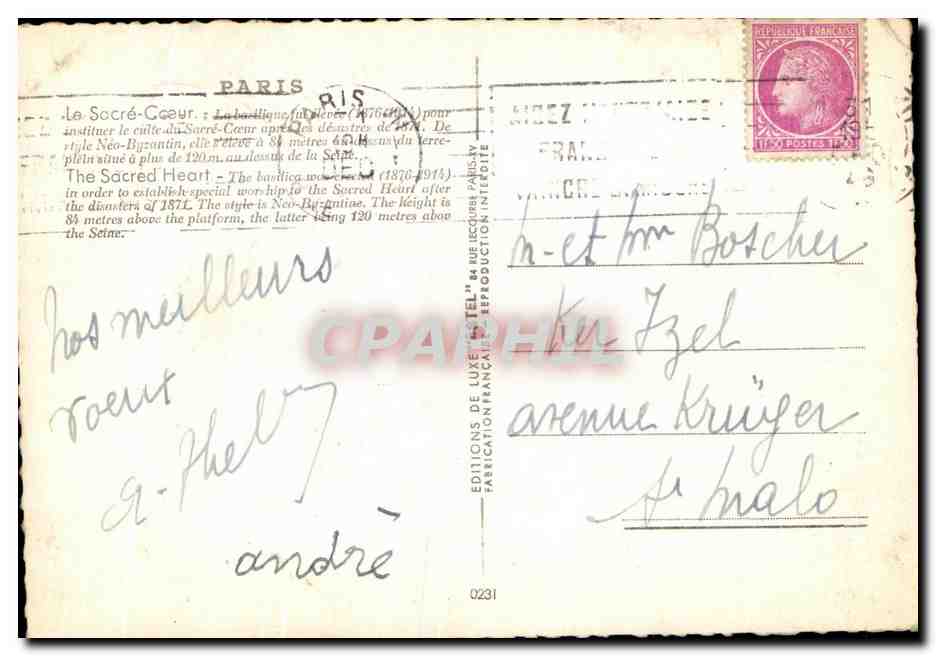 PARIS
Le Sacré-Cœur : La basilique fut élevée (1876-1914) pour
instituer le culte du Sacré-Cœur après les désastres de 1871. De
style Néo-Byzantin, elle s'élève à 84 mètres au-dessus du terre-
plein situé à plus de 120 m. au dessus de la Seine.
The Sacred Heart - The basilica was erected (1876-1914)
in order to establish special worship to the Sacred Heart after
the disasters of 1871. The style is Neo-Byzantine. The height is
84 metres above the platform, the latter being 120 metres above
the Seine.
nos meilleurs
voeux
andrè
EDITIONS DE LUXE "ESTEL" 84 RUE LECOURBE PARIS-XV
FABRICATION FRANÇAISE REPRODUCTION INTERDITE
0231
PARIS
REPUBLIQUE FRANÇAISE
1F50 POSTES 1F50
AIDEZ
VAINCRE
M- et Mm Boscher
Ker Izel
avenue Krüger
St Malo
CPAPHIL